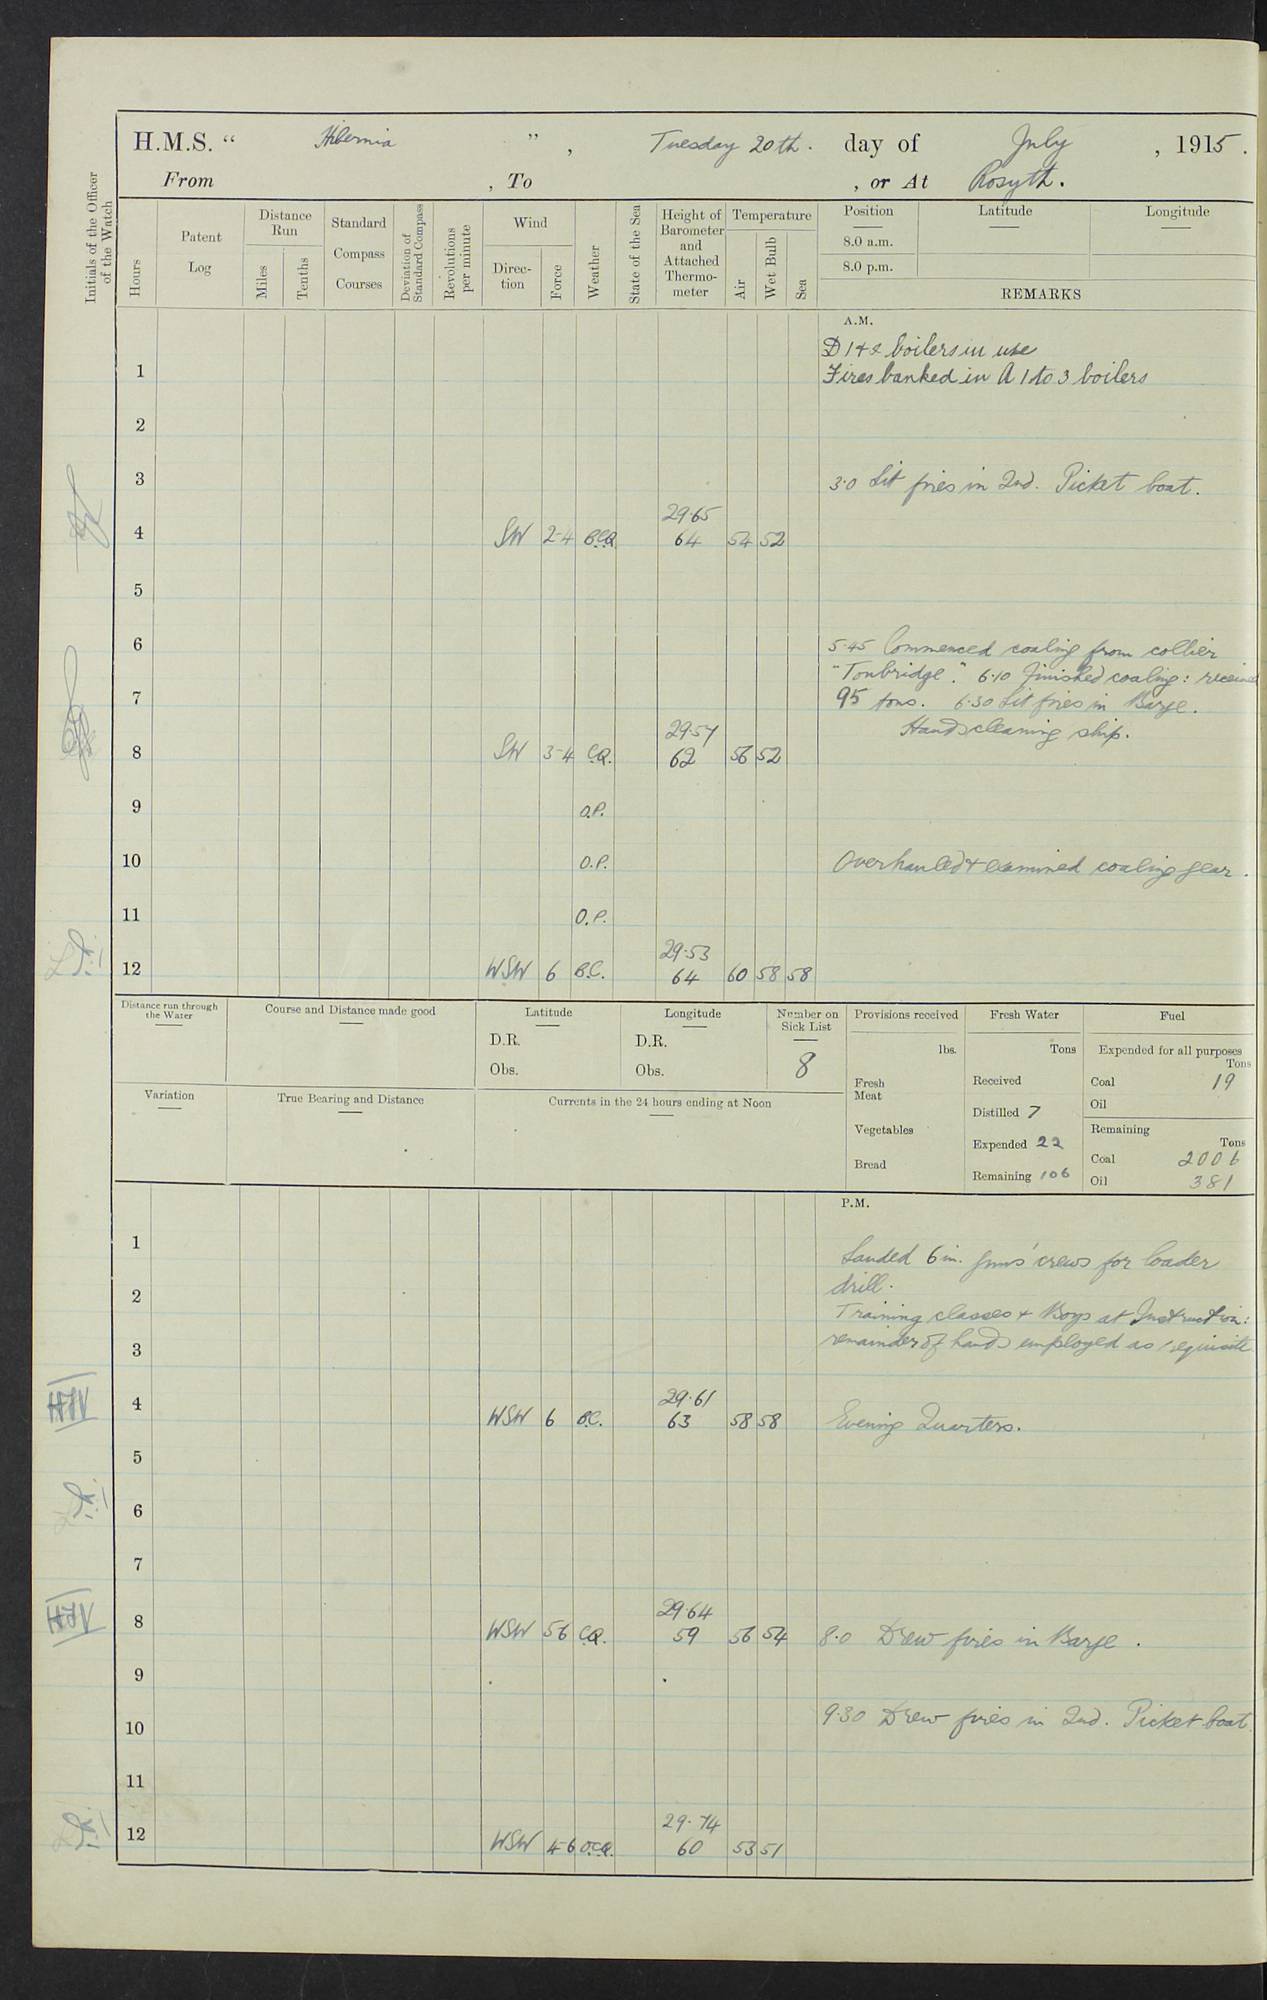 H.M.S. “ Hibernia ” , Tuesday 20th. day of July , 1915.
From , To , or At Rosyth.
Initials of the Officer of the Watch
Hours
Patent Log
Distance Run
Miles
Tenths
Standard Compass Courses
Deviation of Standard Compass
Revolutions per minute
Wind
Direc-tion
Force
Weather
State of the Sea
Height of Barometer and Attached Thermo-meter
Temperature
Air
Wet Bulb
Sea
Position
8.0 a.m.
8.0 p.m.
Latitude
Longitude
REMARKS
A.M.
D 1 & 2 boilers in use
1 Fires banked in A 1 to 3 boilers
2
3 3.0 Lit fires in 2nd. Picket boat.
29.65
4 SW 2-4 B.C.Q. 64 54 52
5
6 5.45 Commenced coaling from collier
"Tonbridge". 6.10 Finished coaling: received
7 95 tons. 6.30 Lit fires in Barge.
29.57 Hands cleaning ship.
8 SW 3-4 C.Q. 62 56 52
9 O.P.
10 O.P. Overhauled & examined coaling gear.
11 O.P.
29.53
12 WSW 6 B.C. 64 60 58 58
Distance run through the Water
Course and Distance made good
Latitude
D.R.
Obs.
Longitude
D.R.
Obs.
Number on Sick List
8
Provisions received
lbs.
Fresh Meat
Vegetables
Bread
Fresh Water
Tons
Received
Distilled 7
Expended 22
Remaining 106
Fuel
Expended for all purposes
Tons
Coal 19
Oil
Remaining
Tons
Coal 2006
Oil 381
Variation
True Bearing and Distance
Currents in the 24 hours ending at Noon
P.M.
1 Landed 6 in. guns' crews for loader
2 drill.
Training classes & Boys at Instruction:
3 remainder of hands employed as requisite
29.61
4 WSW 6 B.C. 63 58 58 Evening Quarters.
5
6
7
29.64
8 WSW 56 C.Q. 59 56 54 8.0 Drew fires in Barge.
9
10 9.30 Drew fires in 2nd. Picket boat.
11
29.74
12 WSW 4-6 O.C.Q. 60 53 51